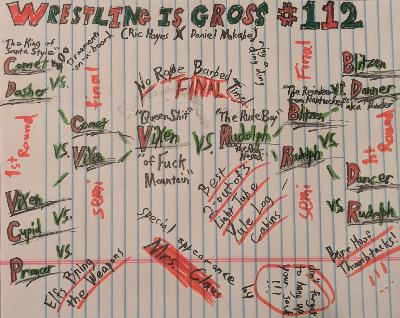 WRESTLING IS GROSS #112
(Ric Hayes X Daniel Makabe)
The King of
Santa Style
Comet
Vs.
Dasher
1st Round
Vs.
Vixen
Vs.
Cupid
Vs.
Prancer
Semi final
Comet
Vs.
Vixen
No Rope Barbed Tinsel
FINAL
"Queen Shit
Vixen
of Fuck
Mountain"
Vs.
"The Rude Boy"
Rudolph
The Red
Nosed
Best
2-out-of-3
Light Tube
Yule Log
Cabins
ring a ding ding
Final
Semi
Blitzen
Vs.
Rudolph
Blitzen
Vs.
Donner
"The Reindeer
from Nantucket"
aka "Thunder"
1st Round
Vs.
Dancer
Vs.
Rudolph
Bare Hoof
Thumbtacks!
!!!
Elfs Bring
the Weapons
Special appearance
by
Mrs. Claus
don't forget
to hang up
your sock
!!!